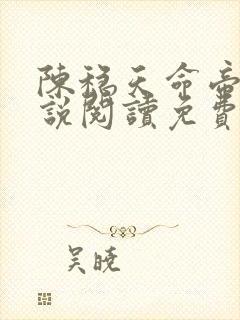 陳稳天命帝
說閱讀免費
吴曉